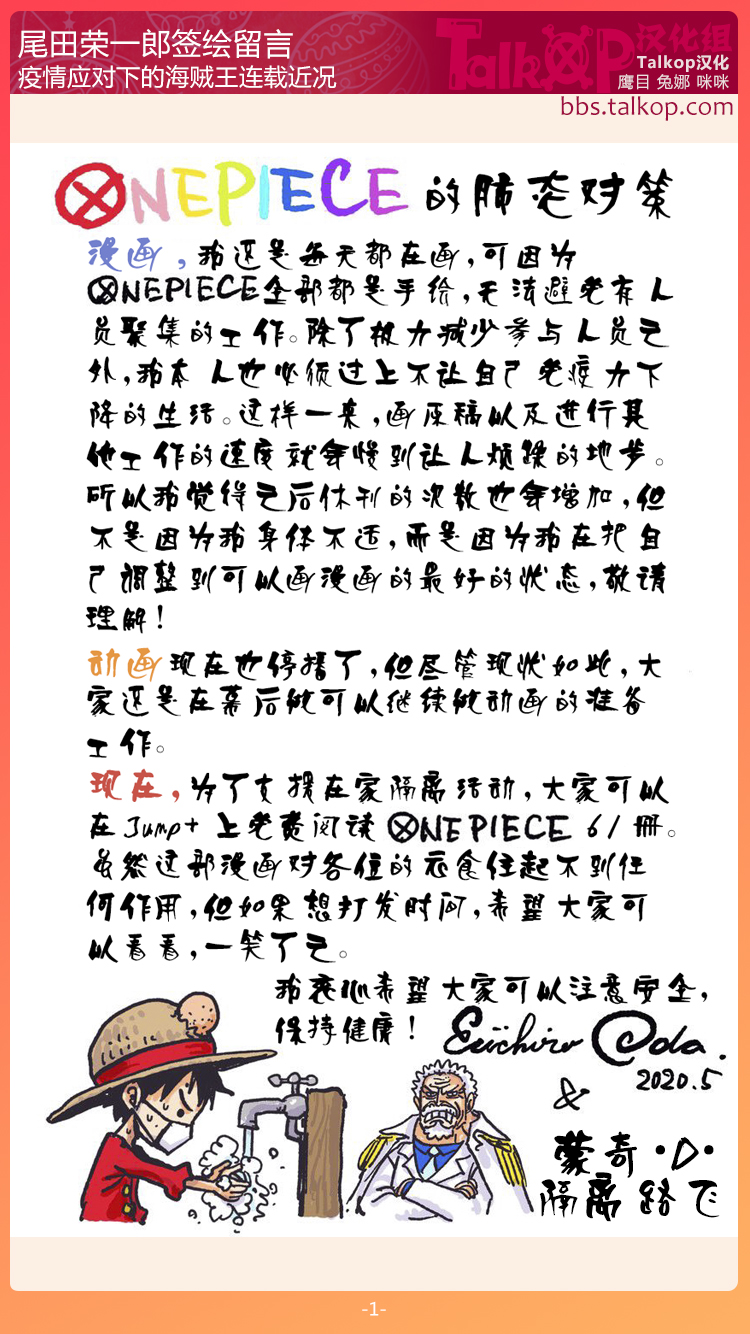 尾田荣一郎签绘留言
疫情应对下的海贼王连载近况
TalkOP汉化组
Talkop汉化
鹰目 兔娜 咪咪
bbs.talkop.com
ONEPIECE的肺炎对策
漫画，我还是每天都在画，可因为
ONEPIECE全部都是手绘，无法避免有人
员聚集的工作。除了极力减少参与人员之
外，我本人也必须过上不让自己免疫力下
降的生活。这样一来，画原稿以及进行其
他工作的速度就会慢到让人烦躁的地步。
所以我觉得之后休刊的次数也会增加，但
不是因为我身体不适，而是因为我在把自
己调整到可以画漫画的最好的状态，敬请
理解！
动画现在也停播了，但尽管现状如此，大
家还是在幕后做可以继续做动画的准备
工作。
现在，为了支援在家隔离活动，大家可以
在Jump+上免费阅读ONEPIECE 61册。
虽然这部漫画对各位的衣食住起不到任
何作用，但如果想打发时间，希望大家可
以看看，一笑了之。
我衷心希望大家可以注意安全，
保持健康！
Eiichiro Oda.
2020.5
&
蒙奇·D·
隔离路飞
-1-